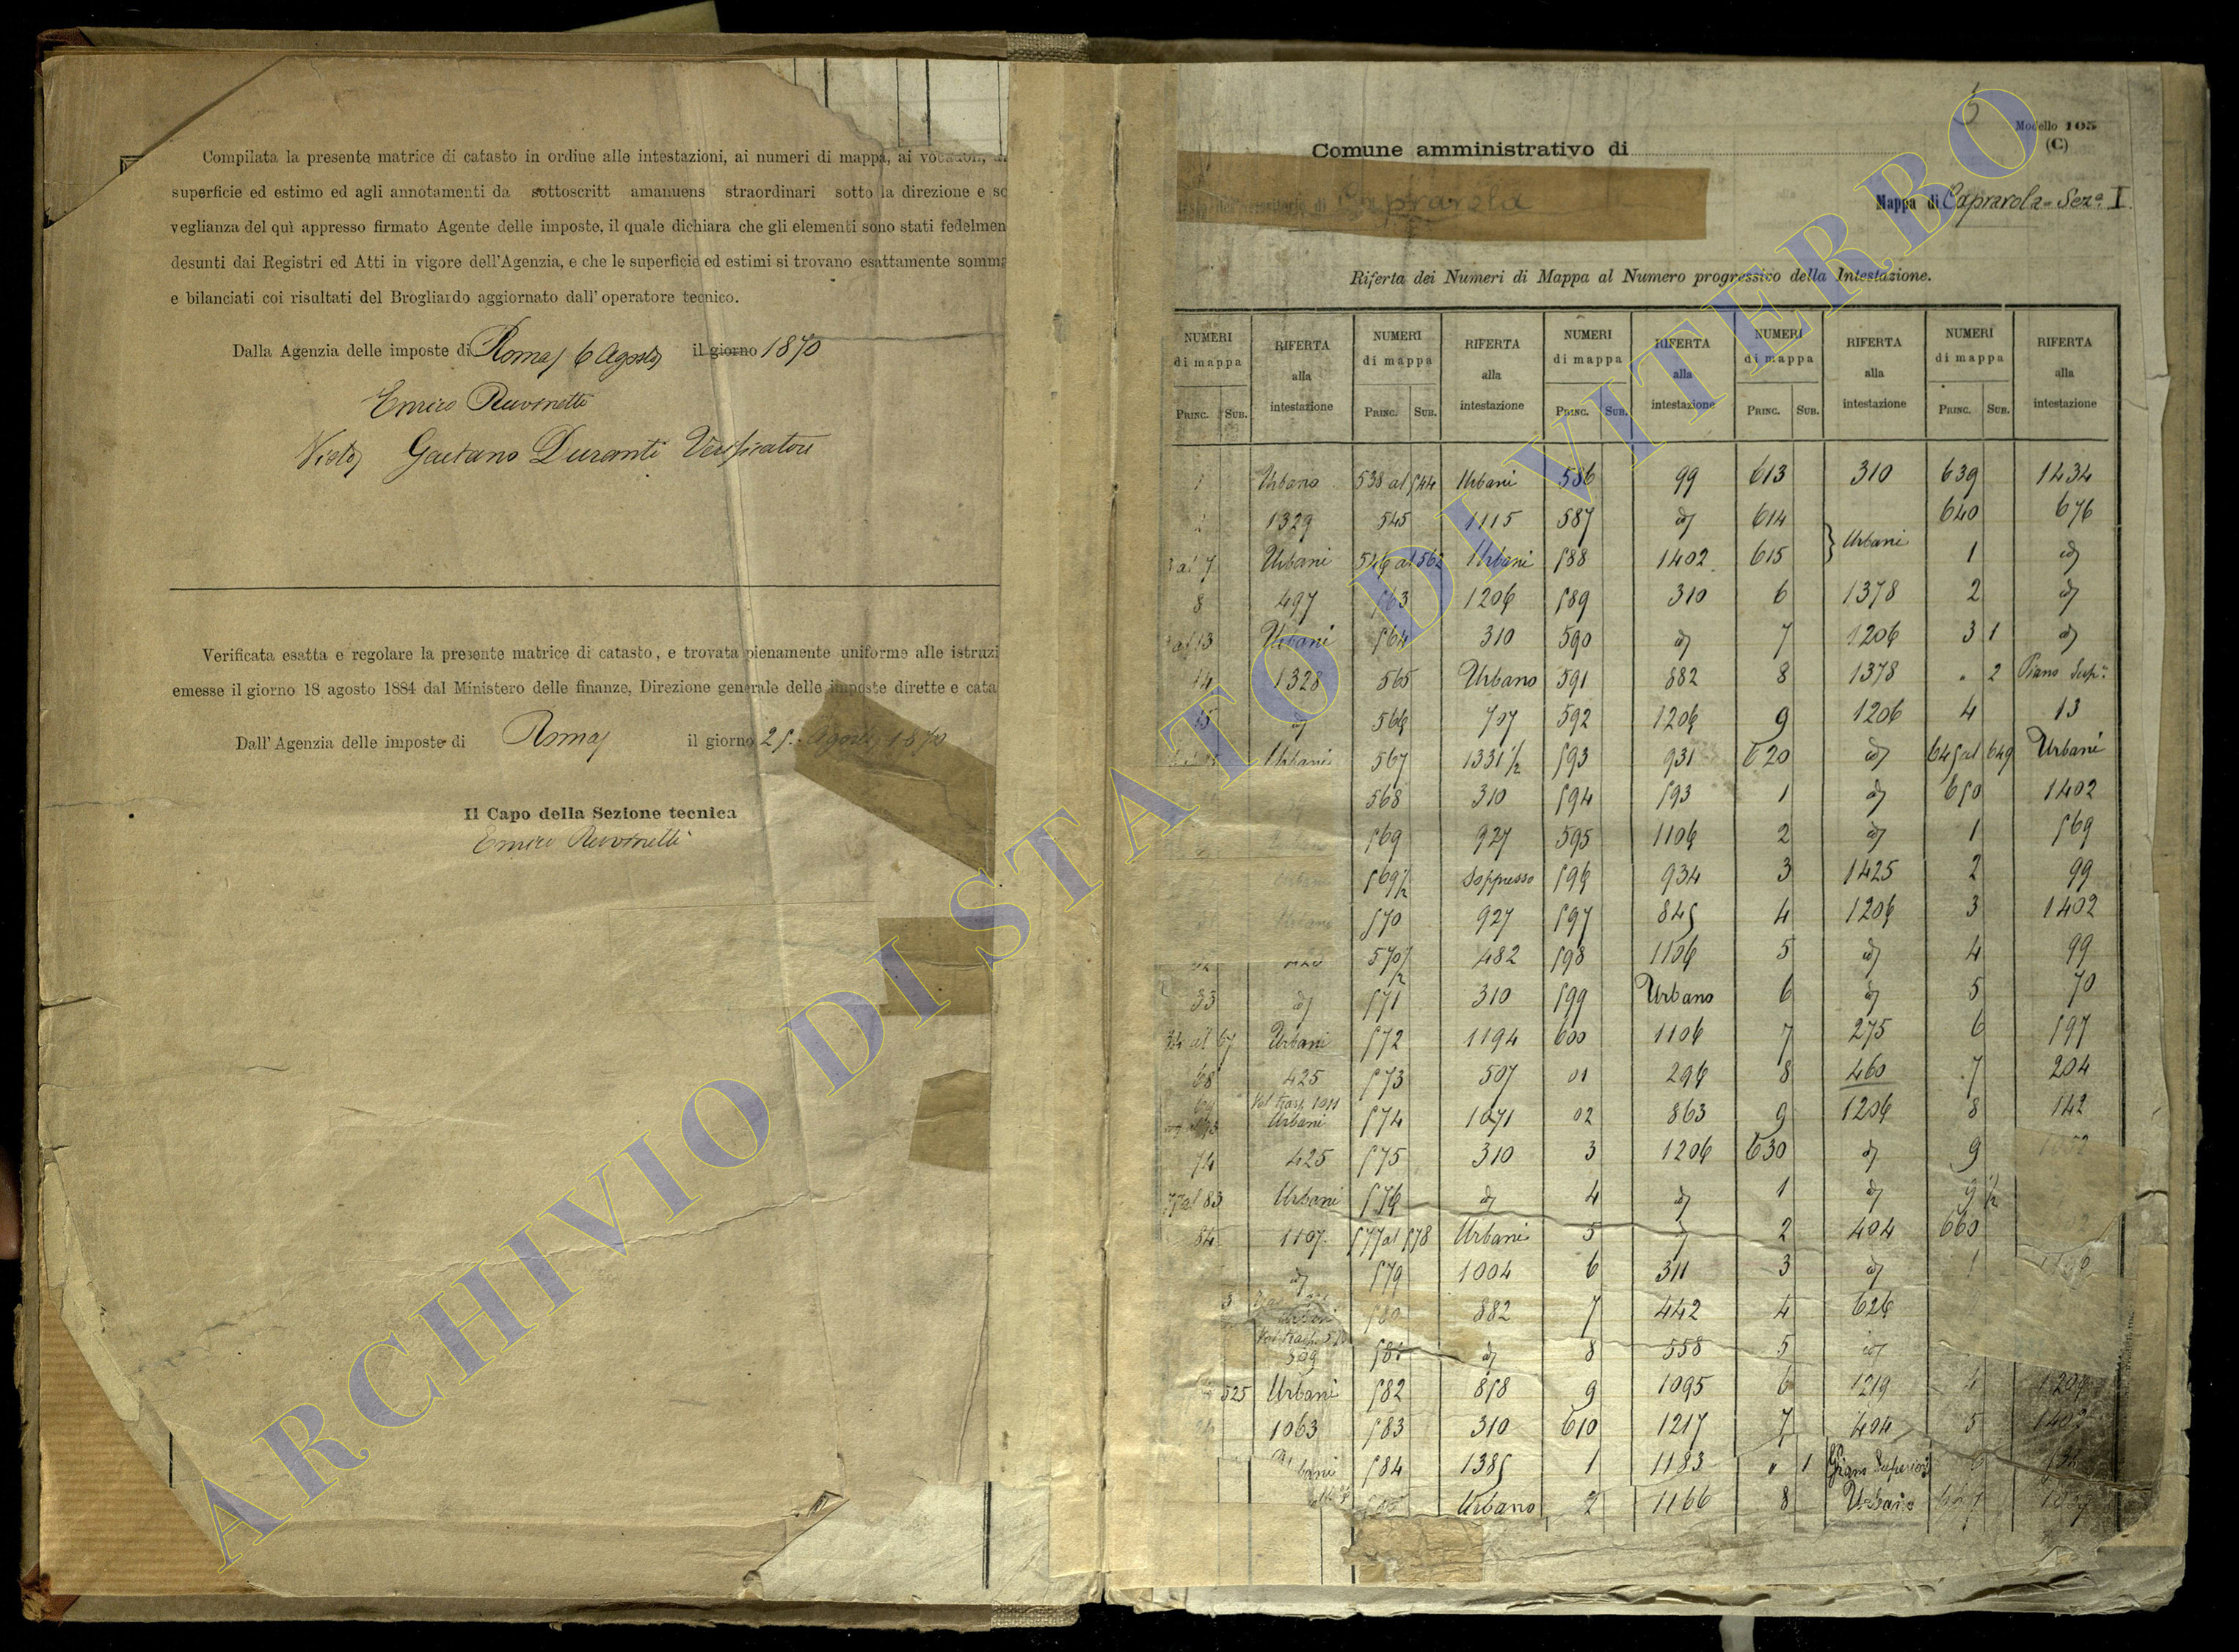 Compilata la presente matrice di catasto in ordine alle intestazioni, ai numeri di mappa, ai
superficie ed estimo ed agli annotamenti da sottoscritt amanuens straordinari sotto la direzione e
veglianza del quì appresso firmato Agente delle imposte, il quale dichiara che gli elementi sono stati fedelmen
desunti dai Registri ed Atti in vigore dell'Agenzia, e che le superficie ed estimi si trovano esattamente somma
e bilanciati coi risultati del Brogliardo aggiornato dall'operatore tecnico.
Dalla Agenzia delle imposte di Roma 6 Agosto il giorno 1890
Enrico
Visto Gaetano Duranti Verificatore
Verificata esatta e regolare la presente matrice di catasto, e trovata pienamente uniforme alle istruzi
emesse il giorno 18 agosto 1884 dal Ministero delle finanze, Direzione generale delle imposte dirette e cata
Dall'Agenzia delle imposte di Roma il giorno 25 Agosto 1890
Il Capo della Sezione tecnica
Enrico
Modello 105
(C)
Comune amministrativo di
Caprarola
Mappa di Caprarola Sez.e I
Riferta dei Numeri di Mappa al Numero progressivo della Intestazione.
NUMERI di mappa RIFERTA alla intestazione NUMERI di mappa RIFERTA alla intestazione NUMERI di mappa RIFERTA alla intestazione NUMERI di mappa RIFERTA alla intestazione NUMERI di mappa RIFERTA alla intestazione
PRINC. SUB. PRINC. SUB. PRINC. SUB. PRINC. SUB. PRINC. SUB.
1 Urbano 538 al 544 Urbani 586 99 613 310 639 1434
2 1329 545 1115 587 id 614 Urbani 640 676
al 7 Urbani 546 al 562 Urbani 588 1402 615 1 id
8 497 563 1206 589 310 6 1378 2 id
al 13 Urbani 564 310 590 id 7 1206 3 1 id
14 1328 565 Urbano 591 882 8 1378 " 2 Piano Sup.
15 id 566 707 592 1206 9 1206 4 13
Urbani 567 1331 1/2 593 931 620 id 645 al 649 Urbani
568 310 594 593 1 id 650 1402
569 927 595 1106 2 id 1 569
569 1/2 Soppresso 596 934 3 1425 2 99
570 927 597 845 4 1206 3 1402
570 1/2 482 598 1106 5 id 4 99
33 id 571 310 599 Urbano 6 id 5 70
34 al 67 Urbani 572 1194 600 1106 7 275 6 597
68 425 573 507 01 296 8 460 7 204
Urbani 574 1071 02 863 9 1206 8 142
74 425 575 310 3 1206 630 id 9
77 al 83 Urbani 576 id 4 id 1 id 9 1/2
84 1107 577 al 578 Urbani 5 id 2 404 660
id 579 1004 6 311 3 id 1
580 882 7 442 4 626
509 581 id 8 558 5 id
525 Urbani 582 858 9 1095 6 1219 4
1063 583 310 610 1217 7 404 5 1402
584 1385 1 1183 " 1 Piano Superiore 6
Urbano 2 1166 8 Urbano
ARCHIVIO DI STATO DI VITERBO